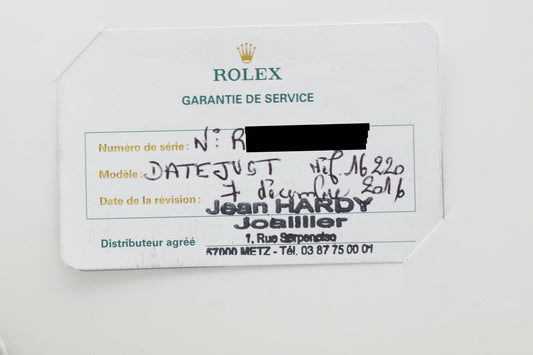 ROLEX
GARANTIE DE SERVICE
Numéro de série : N°: R
Modèle : DATEJUST Réf. 16220
Date de la révision : 7 décembre 2016
Jean HARDY
Joaillier
Distributeur agréé 1, Rue Serpenoise
57000 METZ - Tél. 03 87 75 00 01